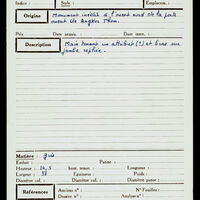 Indice :
Salle :
Emplacem. :
Origine
Monument isolé à l'ouest nord de la porte
ouest de Angkor Thom.
Prix
Date entrée :
Date inven. :
Description
Main tenant un attribut (?) et bras sur
jambe repliée.
Matière : grès
Enduit :
Patine :
Hauteur : 14,5
haut. tenon :
Longueur :
Largeur : 38
Epaisseur :
Poids :
Diamètre col. :
Diamètre panse :
Références
Anciens n° :
N° Feuilles :
Dossier n° :
Analyse n° :